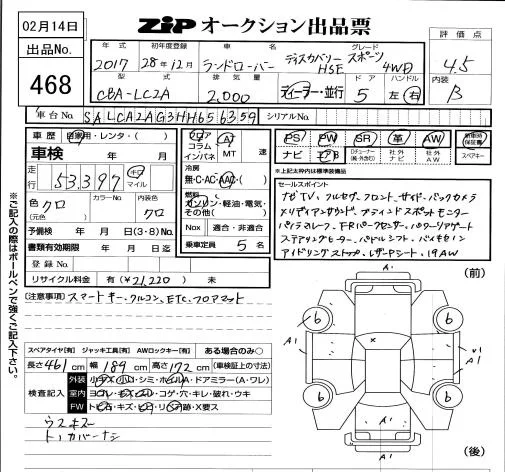 02月14日
ZIP オークション出品票
出品No.
468
年式 初年度登録 車名 グレード
2017 28年12月 ランドローバー ディスカバリー スポーツ HSE 4WD
型式 排気量 ドア ハンドル
CBA-LC2A 2,000 ディーラー・並行 5 左 右
評価点
4.5
内装
B
車台No. SALCA2AG3HH656359 シリアルNo.
車歴 自家用・レンタ・( )
車検 年 月
走行 53,397 キロ マイル
色 クロ (元色) カラーNo. 内装色 クロ
予備検 年 月 日(3・8)No.
書類有効期限 年 月 日迄
登録No.
リサイクル料金 有(¥21,220) 未
フロア コラム インパネ A MT 速
冷房 無・C・AC・AAC・( )
燃料 ガソリン・軽油・電気・その他( )
Nox 適合・非適合
乗車定員 5 名
PS PW SR 革 AW 新車時保証書
ナビ エアB Dチューナー(純・外含む) 社外ナビ 社外AW スペアキー
※上記太枠内は標準装備品
セールスポイント
ナビTV、フルセグ、フロント、サイド、バックカメラ
メリディアンサウンド、ブラインドスポットモニター
パノラマルーフ、FRパワーセンサー、パワーリアゲート
ステアリングヒーター、パドルシフト、バイキセノン
アイドリングストップ、レザーシート、19AW
※ご記入の際はボールペンで強くご記入下さい。
[注意事項] スマートキー、クルコン、ETC、フロアマット
スペアタイヤ[有] ジャッキ工具[有] AWロックキー[有] ある場合のみ○
長さ461cm 幅189cm 高さ172cm (車検証上の寸法)
検査記入
外装 小キズ・小凹・シミ・ホイルA・ドアミラー(A・ワレ)
室内 ヨゴレ・キズ・スレ・コゲ・穴・キレ・破れ・ウキ
FW トビ石・キズ・ヒビ・リペア跡・X要ス
ウスキズ
トノカバーナシ
(前)
A1
6
6
A1
A1
×
6
6
A1
A1
(後)